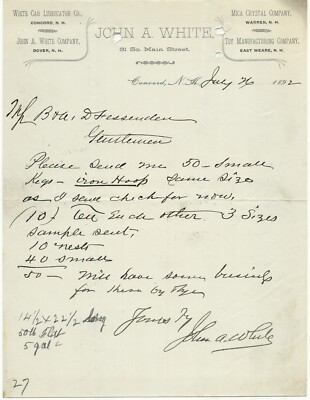 WHITE CAR LUBRICATOR CO.
CONCORD, N. H.
JOHN A. WHITE COMPANY,
DOVER, N. H.
JOHN A WHITE,
51 So. Main Street.
MICA CRYSTAL COMPANY,
WARREN, N. H.
TOY MANUFACTURING COMPANY,
EAST WEARE, N. H.
Concord, N. H. July 26 1892
B & A D Fessenden
Gentlemen
Please send me 50 - small
Kegs - iron Hoop same size
as I send check for now.
10 Each other 3 sizes
sample sent,
10 nests
40 small
50 - Will have some
for them by &
Yours Ty
John A White
14 1/2 x 22 1/2
5 gal
27